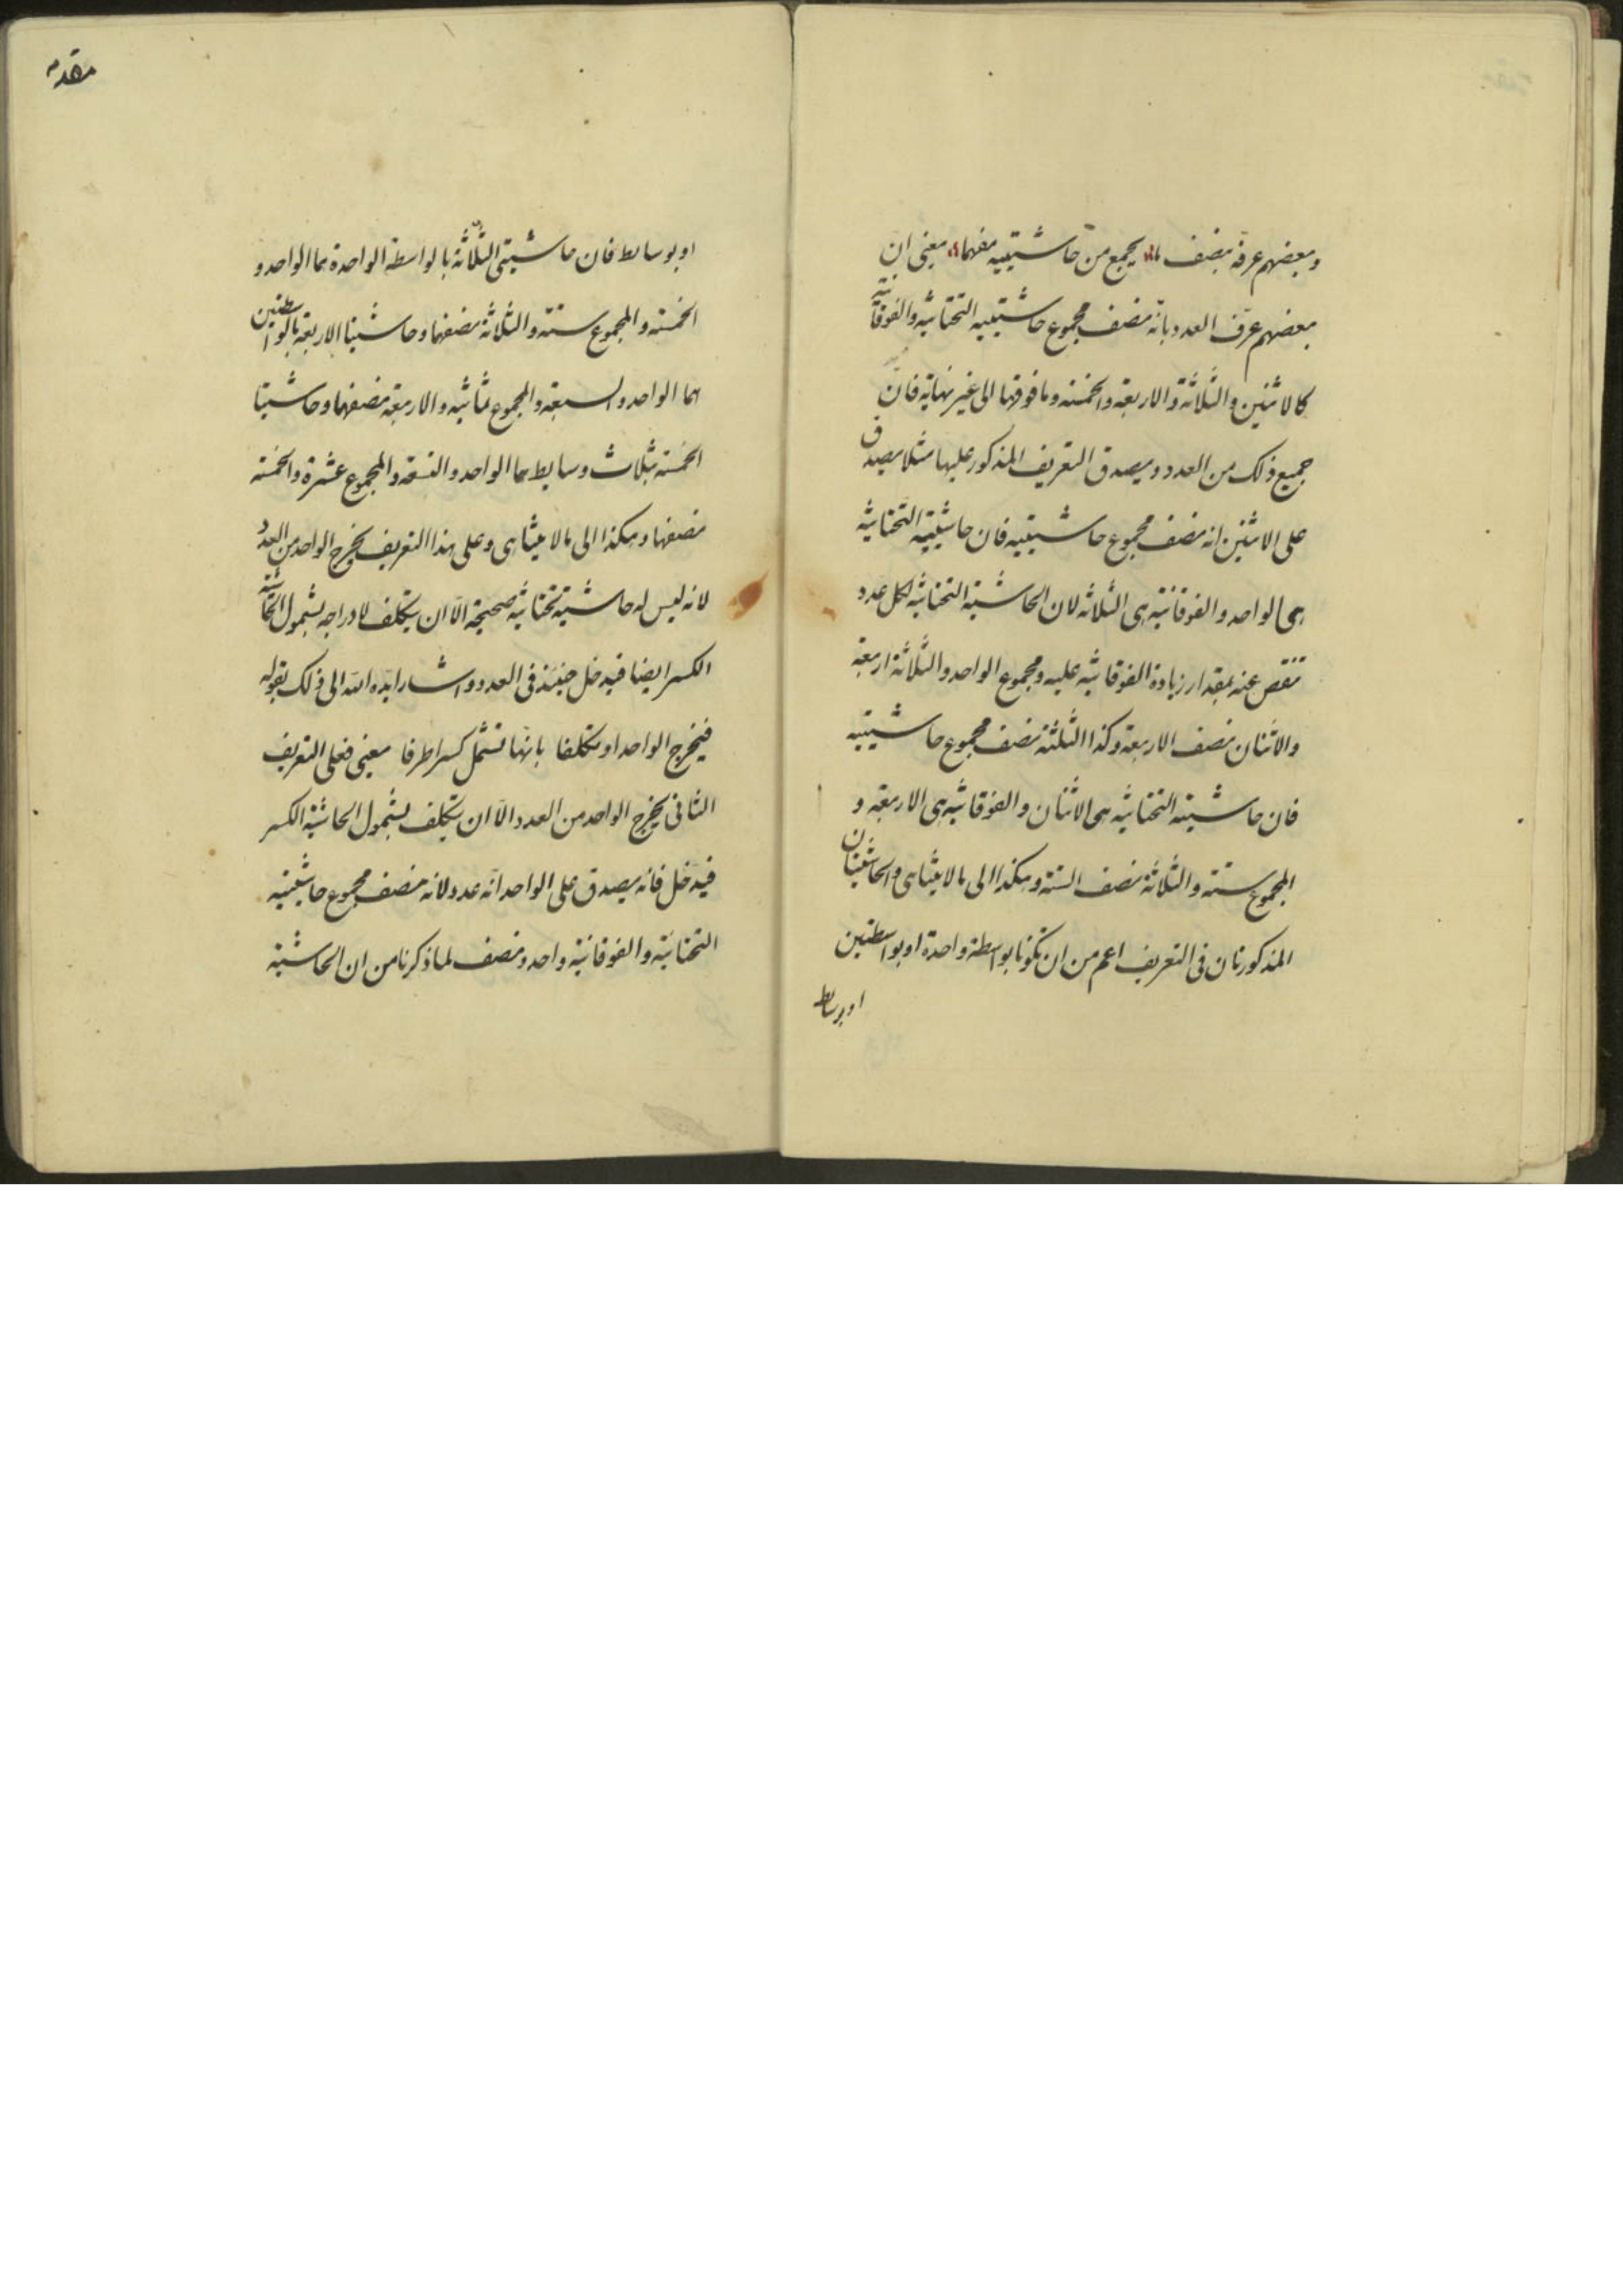 وبعضهم عرفه بنصف ما يجمع من حاشيتيه مفهما يعنى ان
بعضهم عرّف العدد بانّه نصف مجموع حاشيتيه التحتانيه والفوقانية
كالاثنين والثلاثة والاربعة والخمسة وما فوقها الى غير نهاية فانّ
جميع ذلك من العدد ويصدق التعريف المذكور عليها مثلا يصدق
على الاثنين انه نصف مجموع حاشيتيه فان حاشيتيه التحتانيه
هى الواحد والفوقانيّه هى الثلاثه لان الحاشية التحتانيه لكل عدد
تنقص عنه بمقدار زيادة الفوقانيه عليه ومجموع الواحد والثلاثة اربعة
والاثنان نصف الاربعة وكذا الثلثة نصف مجموع حاشيتيه
فان حاشيته التحتانيه هى الاثنان والفوقانيه هى الاربعة و
المجموع ستة والثلاثة نصف الستة وهكذا الى ما لا يتناهى والحاشيتان
المذكورتان فى التعريف اعم من ان تكونا بواسطة واحدة او بواسطتين
او بوسايط
مقدمه
او بوسايط فان حاشيتى الثلاثة بالواسطة الواحدة هما الواحد و
الخمسة والمجموع ستة والثلاثة نصفها وحاشيتا الاربعة بالواسطتين
هما الواحد والسبعة والمجموع ثمانيه والاربعة نصفهما وحاشيتا
الخمسة بثلاث وسايط هما الواحد والتسعة والمجموع عشرة والخمسة
نصفها وهكذا الى ما لا يتناهى وعلى هذا التعريف يخرج الواحد من العدد
لانه ليس له حاشية تحتانيه صحيحة الّا ان يتكلف لادراجه بشمول الحاشية
الكسر ايضا فيدخل حينئذ فى العدد واشار ايّده الله الى ذلك بقوله
فيخرج الواحد او تكلفا بانّها تشمل كسرا طرفا يعنى فعلى التعريف
الثانى يخرج الواحد من العدد الّا ان يتكلف بشمول الحاشية الكسر
فيدخل فانه يصدق على الواحد انّه عدد لانه نصف مجموع حاشيتيه
التحتانيّة والفوقانيّة واحد ونصف لما ذكرنا من ان الحاشية